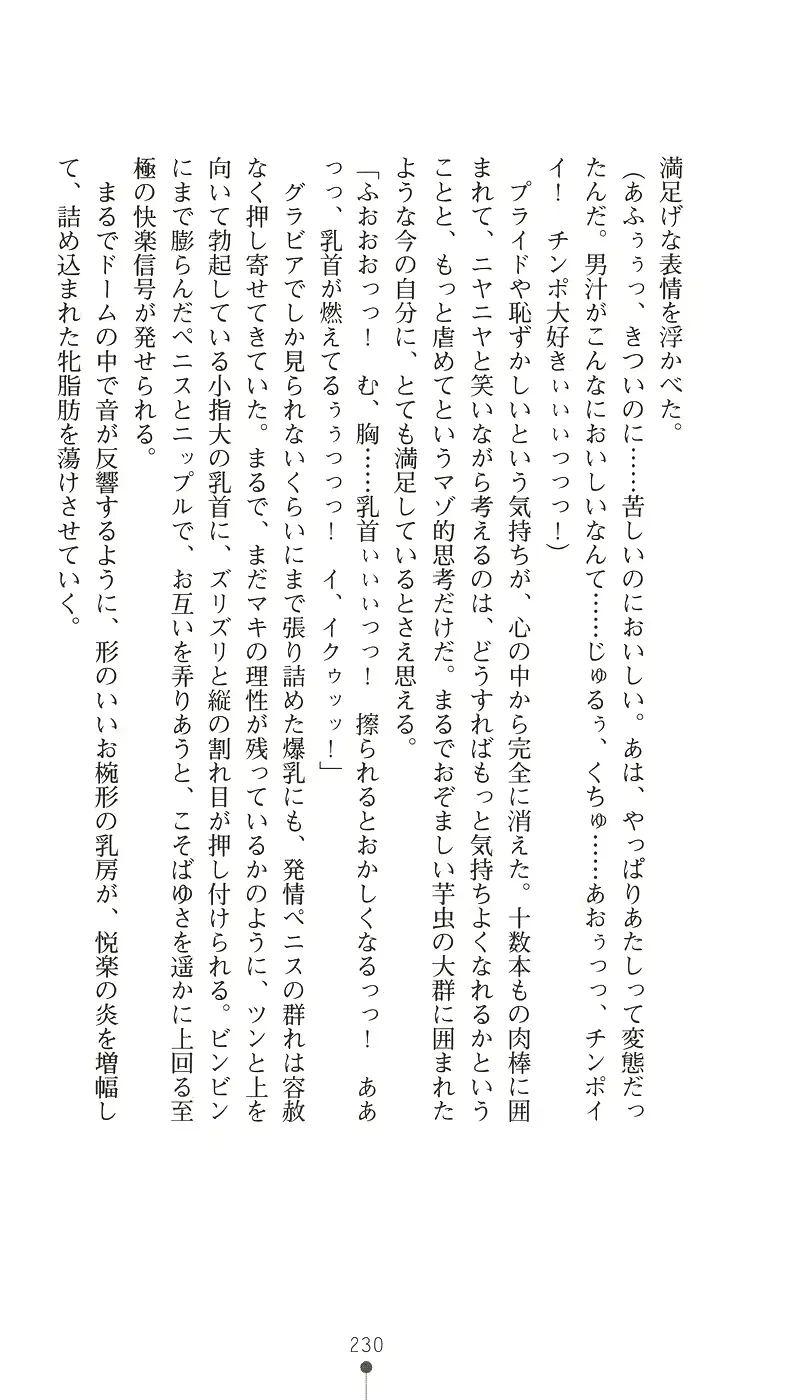 満足げな表情を浮かべた。
（あふぅぅっ、きついのに……苦しいのにおいしい。あは、やっぱりあたしって変態だっ
たんだ。男汁がこんなにおいしいなんて……じゅるぅ、くちゅ……あおぅっっ、チンポイ
イ！　チンポ大好きぃぃぃっっっ！）
　プライドや恥ずかしいという気持ちが、心の中から完全に消えた。十数本もの肉棒に囲
まれて、ニヤニヤと笑いながら考えるのは、どうすればもっと気持ちよくなれるかという
ことと、もっと虐めてというマゾ的思考だけだ。まるでおぞましい芋虫の大群に囲まれた
ような今の自分に、とても満足しているとさえ思える。
「ふおおおっっ！　む、胸……乳首ぃぃぃっっ！　擦られるとおかしくなるっっ！　ああ
っっ、乳首が燃えてるぅぅっっっ！　イ、イクゥッッ！」
　グラビアでしか見られないくらいにまで張り詰めた爆乳にも、発情ペニスの群れは容赦
なく押し寄せてきていた。まるで、まだマキの理性が残っているかのように、ツンと上を
向いて勃起している小指大の乳首に、ズリズリと縦の割れ目が押し付けられる。ビンビン
にまで膨らんだペニスとニップルで、お互いを弄りあうと、こそばゆさを遥かに上回る至
極の快楽信号が発せられる。
　まるでドームの中で音が反響するように、形のいいお椀形の乳房が、悦楽の炎を増幅し
て、詰め込まれた牝脂肪を蕩けさせていく。
230